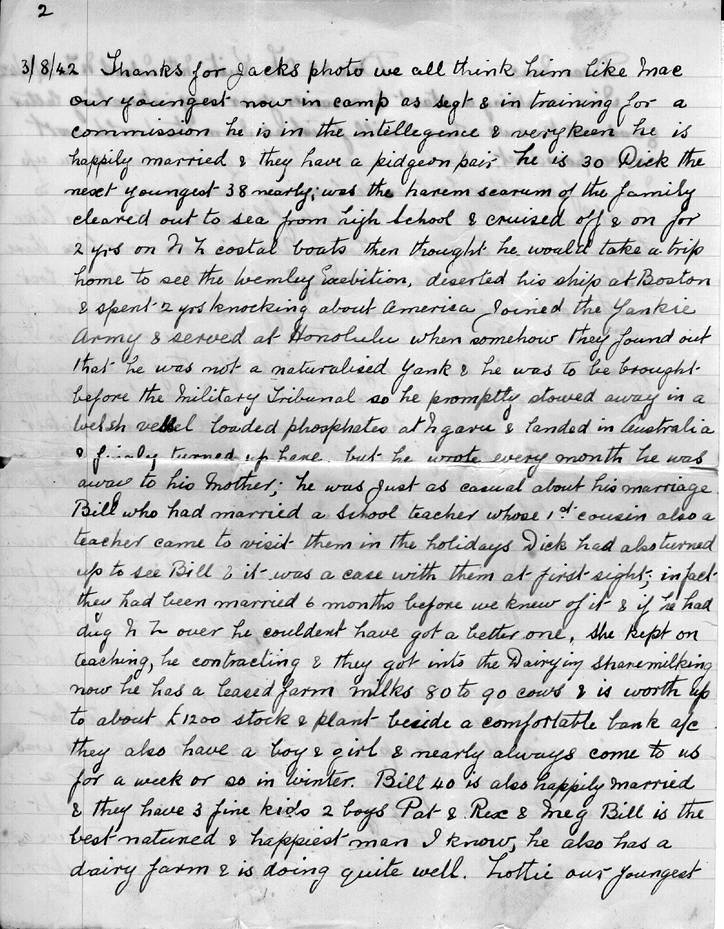 2
3/8/42 Thanks for Jacks photo we all think him like Mac
our youngest now in camp as segt & in training for a
commission he is in the intellegence & very keen he is
happily married & they have a pidgeon pair he is 30 Dick the
next youngest 38 nearly; was the harem scarum of the family
cleared out to sea from high School & cruised off & on for
2 yrs on N Z costal boats then thought he would take a trip
home to see the Wemley Exebition, deserted his ship at Boston
& spent 2 yrs knocking about America Joined the Yankie
Army & served at Honolulu when somehow they found out
that he was not a naturalised Yank & he was to be brought
before the Military Tribunal so he promptly stowed away in a
welsh vessel loaded phosphates at Ngaru & landed in Australia
& finaly turned up here but he wrote every month he was
away to his Mother; he was just as casual about his marriage
Bill who had married a School teacher whose 1st cousin also a
teacher came to visit them in the holidays Dick had also turned
up to see Bill & it was a case with them at first sight; infact
they had been married 6 months before we knew of it & if he had
dug N Z over he couldent have got a better one, She kept on
teaching, he contracting & they got into the Dairying Sharemilking
now he has a leased farm milks 80 to 90 cows & is worth up
to about £1200 stock & plant beside a comfortable bank a/c
they also have a boy & girl & nearly always come to us
for a week or so in winter. Bill 40 is also happily married
& they have 3 fine kids 2 boys Pat & Rex & Meg Bill is the
best natured & happiest man I know, he also has a
dairy farm & is doing quite well. Lottie our youngest